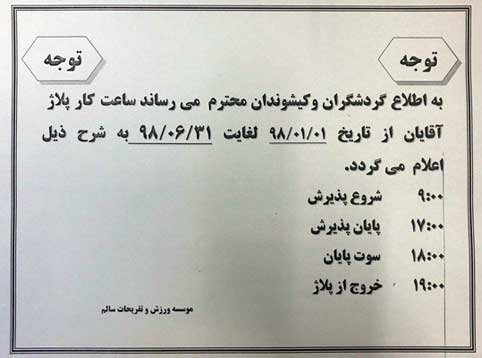 توجه توجه
به اطلاع گردشگران وکیشوندان محترم می رساند ساعت کار پلاژ
آقایان از تاریخ ۹۸/۰۱/۰۱ لغایت ۹۸/۰۶/۳۱ به شرح ذیل
اعلام می گردد.
۹:۰۰ شروع پذیرش
۱۷:۰۰ پایان پذیرش
۱۸:۰۰ سوت پایان
۱۹:۰۰ خروج از پلاژ
موسسه ورزش و تفریحات سالم